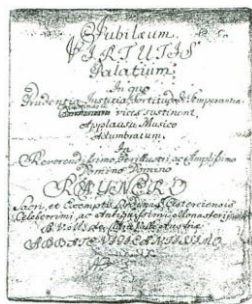 Jubilæum
VIRTUTIS
Palatium
In quo
Prudentia, Justitia, Fortitudo et Temperantia
vices sustinent,
Applausu Musico
Adumbratum.
In
Reverendissimo Perillustri, ac Amplissimo
Domino Domino
RAYNERO
Sacri, et Exempti Ordinis Cisterciensis
Celeberrimi, ac Antiquissimi Monasterij
B. V.
ABBATE VIGILANTISSIMO